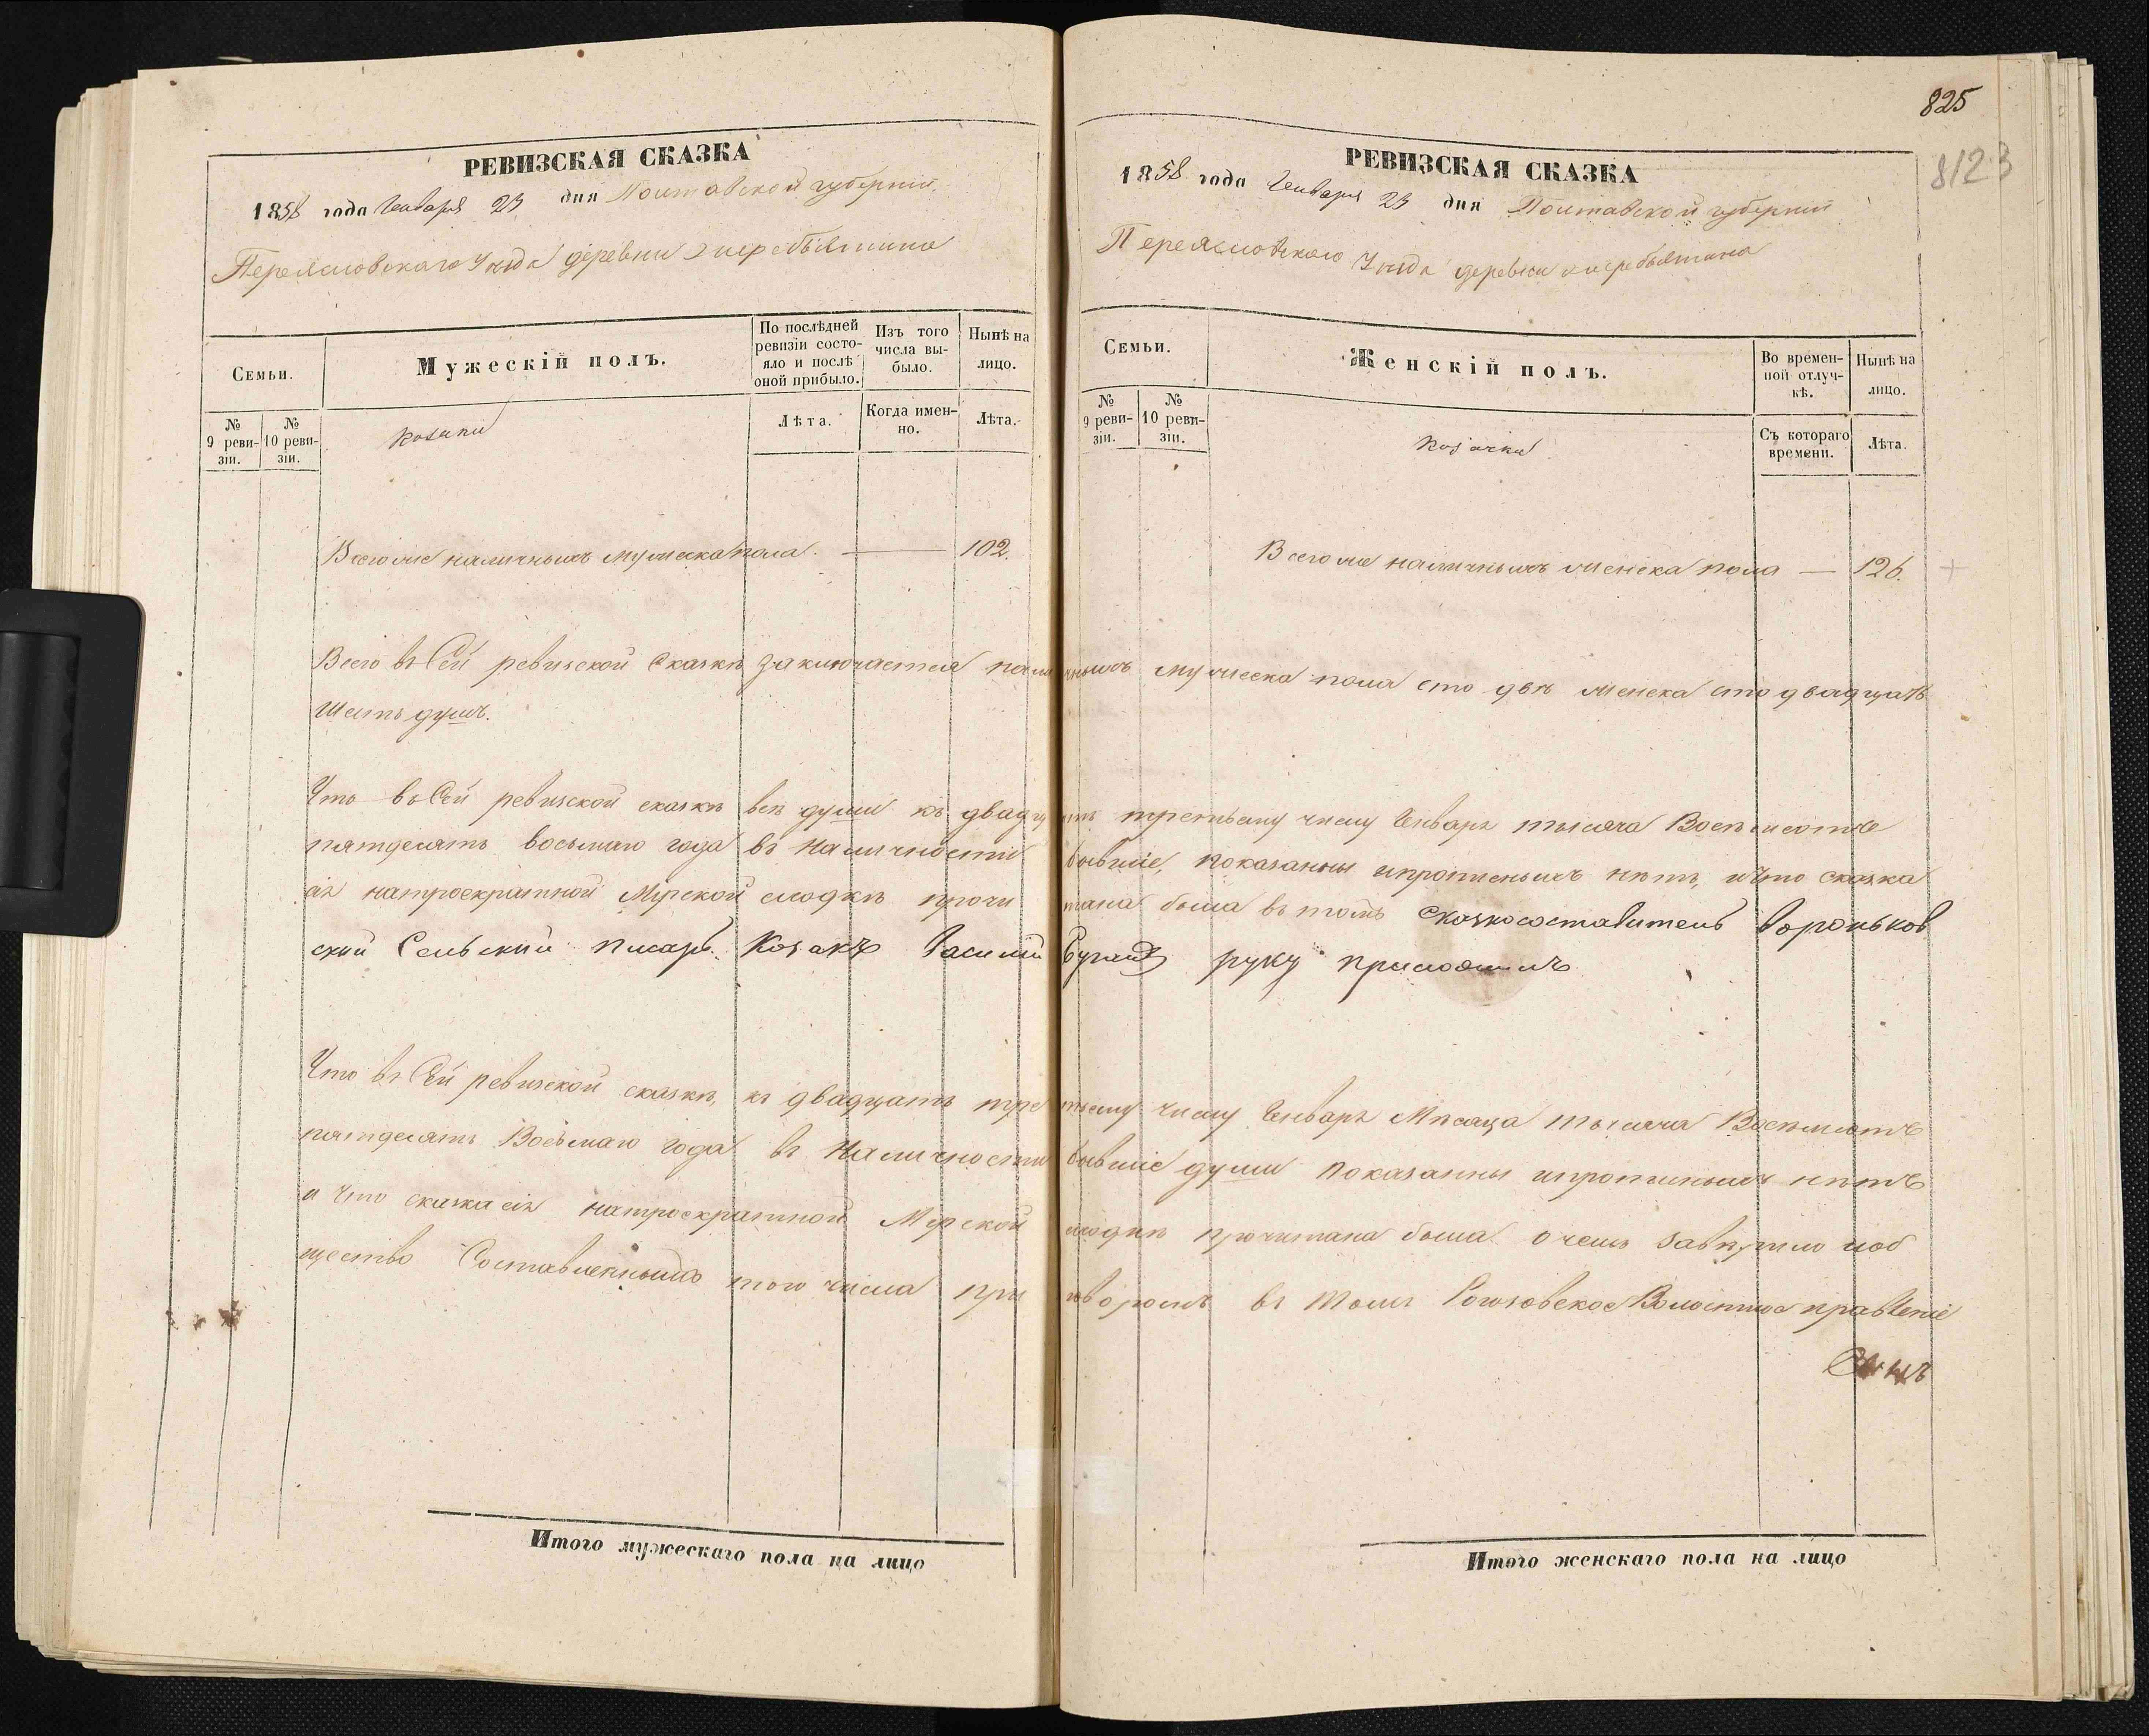 825
8123
РЕВИЗСКАЯ СКАЗКА
1858 года Генваря 23 дня Полтавской губерніи
Переясловскаго Уѣзда деревни Жеребятина
Семьи.
Мужескій полъ.
По послѣдней ревизіи состояло и послѣ оной прибыло.
Изъ того числа выбыло.
Нынѣ на лицо.
№ 9 ревизіи.
№ 10 ревизіи.
Козаки
Лѣта.
Когда именно.
Лѣта.
Всего же наличныхъ мужеска пола — 102.
РЕВИЗСКАЯ СКАЗКА
1858 года Генваря 23 дня Полтавской губерніи
Переясловскаго Уѣзда деревни Жеребятина
Семьи.
Женскій полъ.
Во временной отлучкѣ.
Нынѣ на лицо.
№ 9 ревизіи.
№ 10 ревизіи.
Козачки
Съ котораго времени.
Лѣта.
Всего же наличныхъ женска пола — 126.
Всего въ Сей ревизской Сказкѣ заключается наличныхъ мужеска пола сто двѣ женска сто двадцать
Шесть душъ.
Что въ Сей ревизской сказкѣ всѣ души къ двадцать третьему числу Генваря тысяча Восемьсотъ
пятдесятъ восьмаго года въ наличности бывшіе, показанны ипрописныхъ нѣтъ, ичто сказка
сія натроекратной Мірской сходкѣ прочитана была въ томъ Сказкосоставитель Вороньков
скій Сельскій писарь Козакъ Василій руку приложилъ
Что въ Сей ревизской сказкѣ, къ двадцать третьему числу Генваря Мѣсяца тысяча Восемьсотъ
пятдесятъ Восьмаго года въ Наличности бывшіе души показанны ипрописныхъ нѣтъ
и Что сказка сія натроекратной Мірской сходкѣ прочитана была о чемъ завѣрило иоб
щество Составленнымъ того числа приговоромъ въ томъ Рогозовское Волостное правленіе
Итого мужескаго пола на лицо
Итого женскаго пола на лицо